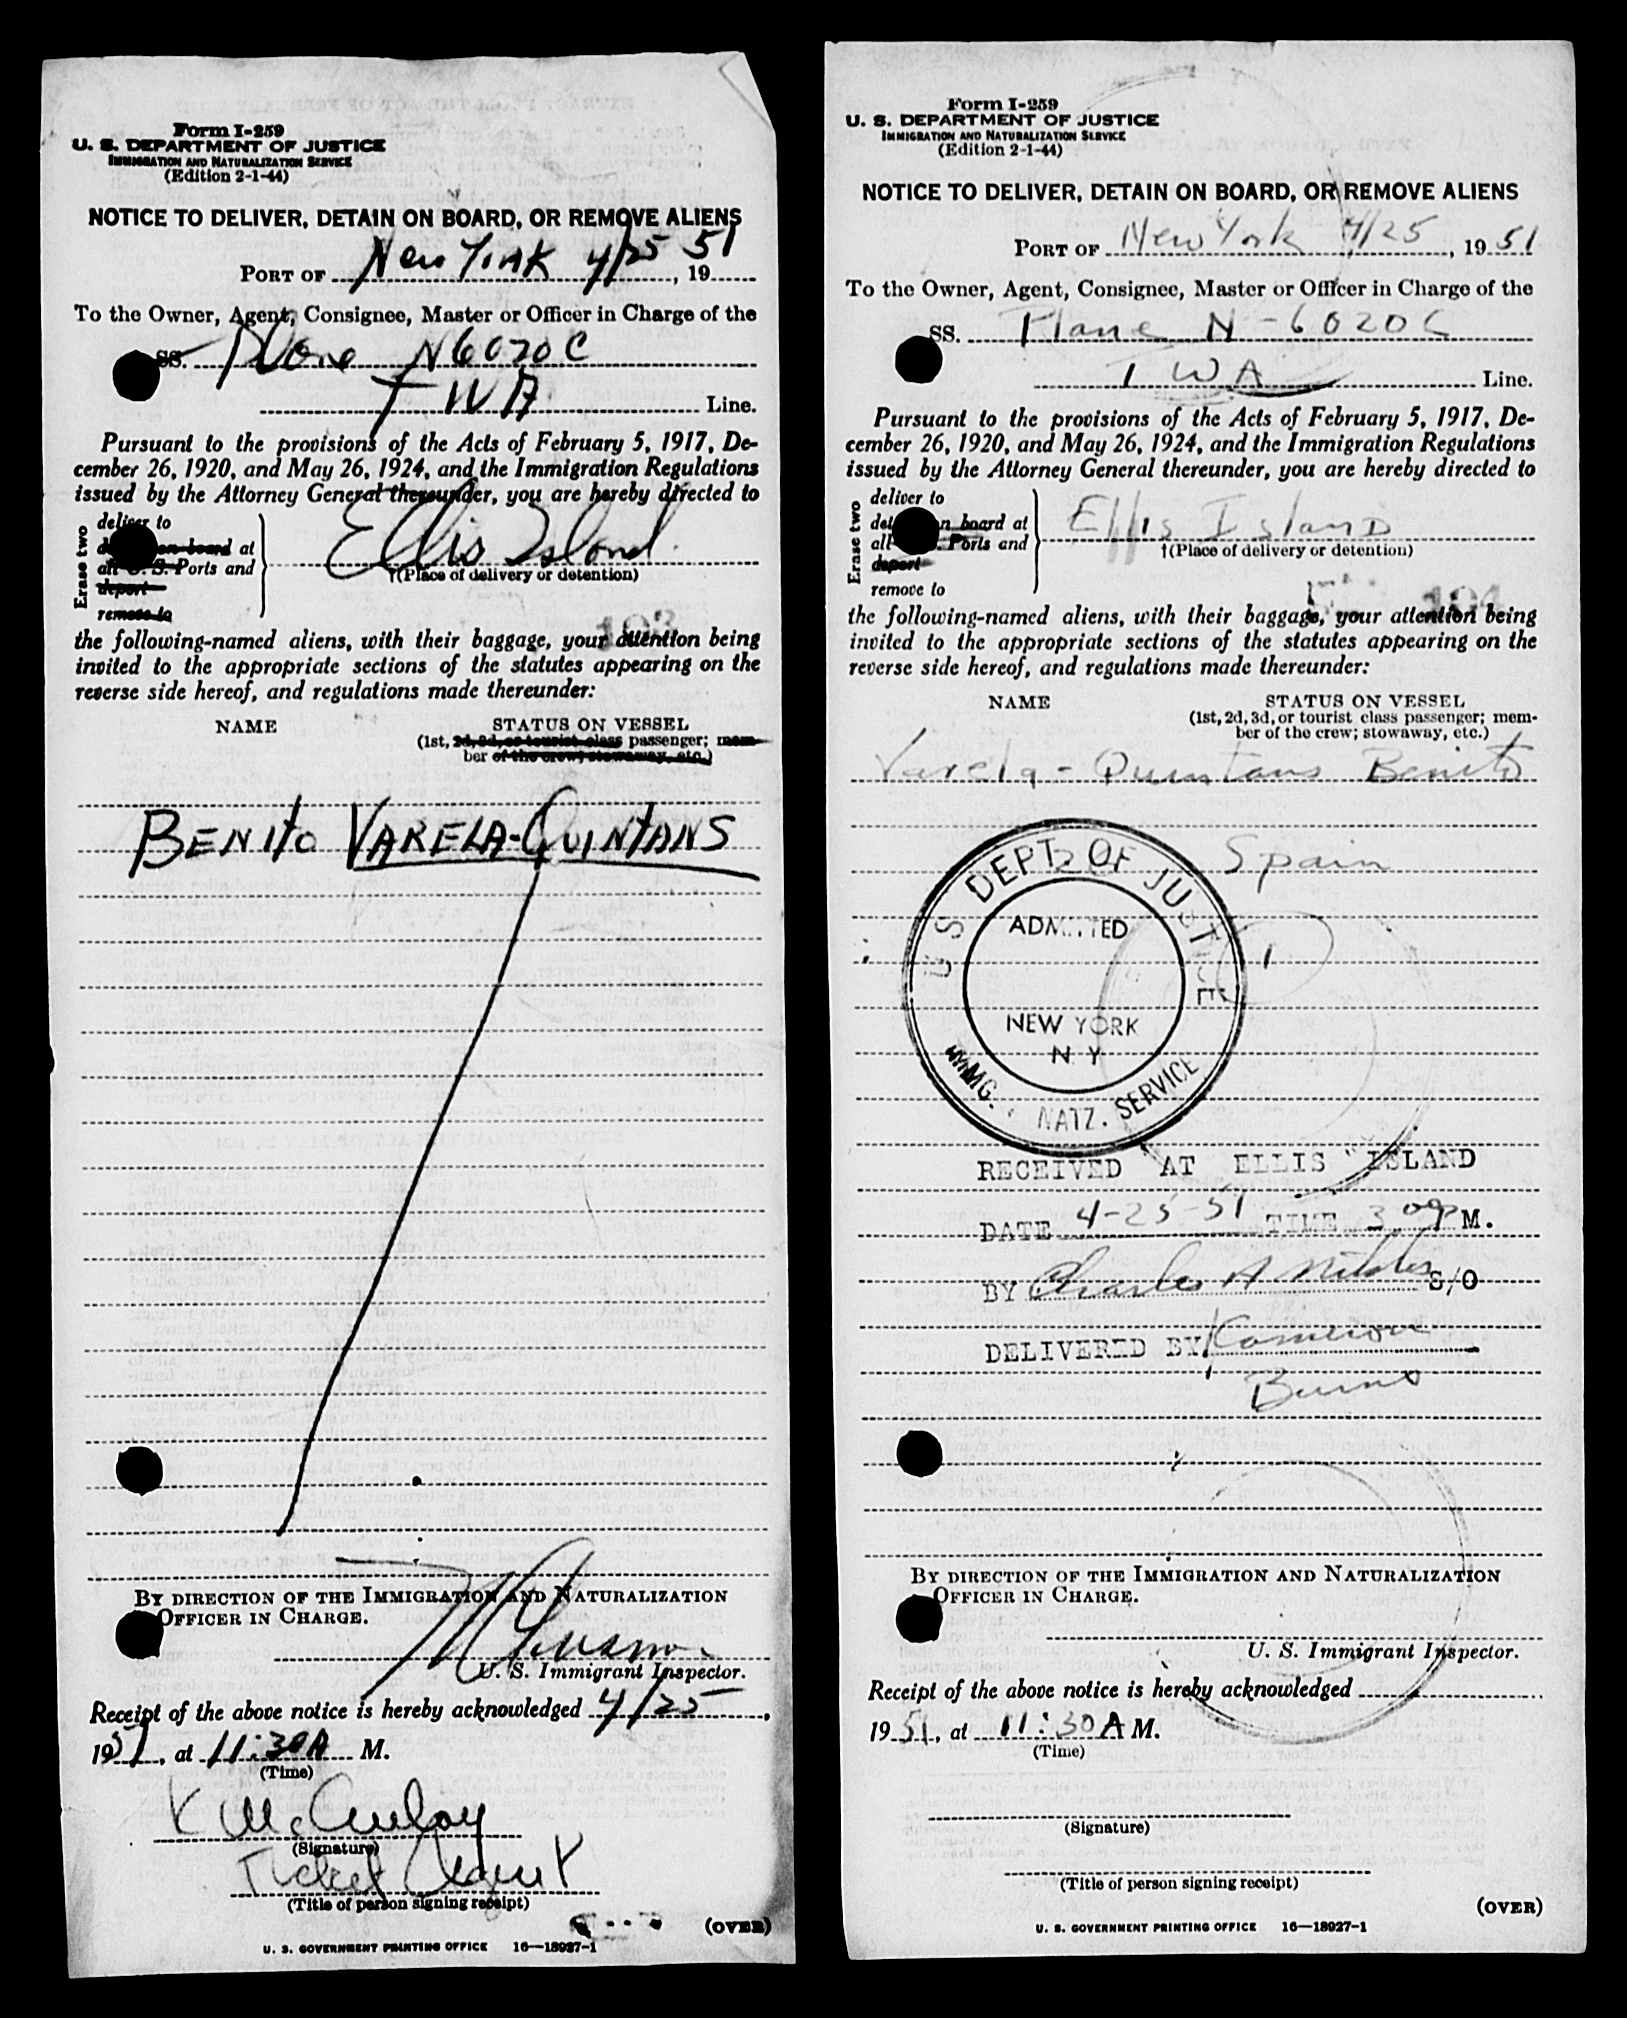 Form I-259
U. S. DEPARTMENT OF JUSTICE
IMMIGRATION AND NATURALIZATION SERVICE
(Edition 2-1-44)
NOTICE TO DELIVER, DETAIN ON BOARD, OR REMOVE ALIENS
PORT OF New York 4/25, 19 51
To the Owner, Agent, Consignee, Master or Officer in Charge of the
SS. Plane N6020C
TWA Line.
Pursuant to the provisions of the Acts of February 5, 1917, De-
cember 26, 1920, and May 26, 1924, and the Immigration Regulations
issued by the Attorney General thereunder, you are hereby directed to
Erase two
deliver to
on board at
all U. S. Ports and
deport
remove to
Ellis Island
†(Place of delivery or detention)
193
the following-named aliens, with their baggage, your attention being
invited to the appropriate sections of the statutes appearing on the
reverse side hereof, and regulations made thereunder:
NAME STATUS ON VESSEL
(1st, 2d, 3d, or tourist class passenger; mem-
ber of the crew; stowaway, etc.)
BENITO VARELA-QUINTANS
BY DIRECTION OF THE IMMIGRATION AND NATURALIZATION
OFFICER IN CHARGE.
U. S. Immigrant Inspector.
Receipt of the above notice is hereby acknowledged 4/25,
1951, at 11:30A M.
(Time)
X McAulay
(Signature)
Ticket Agent X
(Title of person signing receipt)
(OVER)
U. S. GOVERNMENT PRINTING OFFICE 16—18927-1
Form I-259
U. S. DEPARTMENT OF JUSTICE
IMMIGRATION AND NATURALIZATION SERVICE
(Edition 2-1-44)
NOTICE TO DELIVER, DETAIN ON BOARD, OR REMOVE ALIENS
PORT OF New York 4/25, 19 51
To the Owner, Agent, Consignee, Master or Officer in Charge of the
SS. Plane N-6020C
TWA Line.
Pursuant to the provisions of the Acts of February 5, 1917, De-
cember 26, 1920, and May 26, 1924, and the Immigration Regulations
issued by the Attorney General thereunder, you are hereby directed to
Erase two
deliver to
on board at
all Ports and
deport
remove to
Ellis Island
†(Place of delivery or detention)
194
the following-named aliens, with their baggage, your attention being
invited to the appropriate sections of the statutes appearing on the
reverse side hereof, and regulations made thereunder:
NAME STATUS ON VESSEL
(1st, 2d, 3d, or tourist class passenger; mem-
ber of the crew; stowaway, etc.)
Varela-Quintans Benito
Spain
1
U S DEPT. OF JUSTICE
ADMITTED
NEW YORK
N Y
IMMG. NATZ. SERVICE
RECEIVED AT ELLIS ISLAND
DATE 4-25-51 TIME 3 00 P M.
BY Charles A S/O
DELIVERED BY Cameron
Burns
BY DIRECTION OF THE IMMIGRATION AND NATURALIZATION
OFFICER IN CHARGE.
U. S. Immigrant Inspector.
Receipt of the above notice is hereby acknowledged
19 51, at 11:30 A M.
(Time)
(Signature)
(Title of person signing receipt)
(OVER)
U. S. GOVERNMENT PRINTING OFFICE 16—18927-1